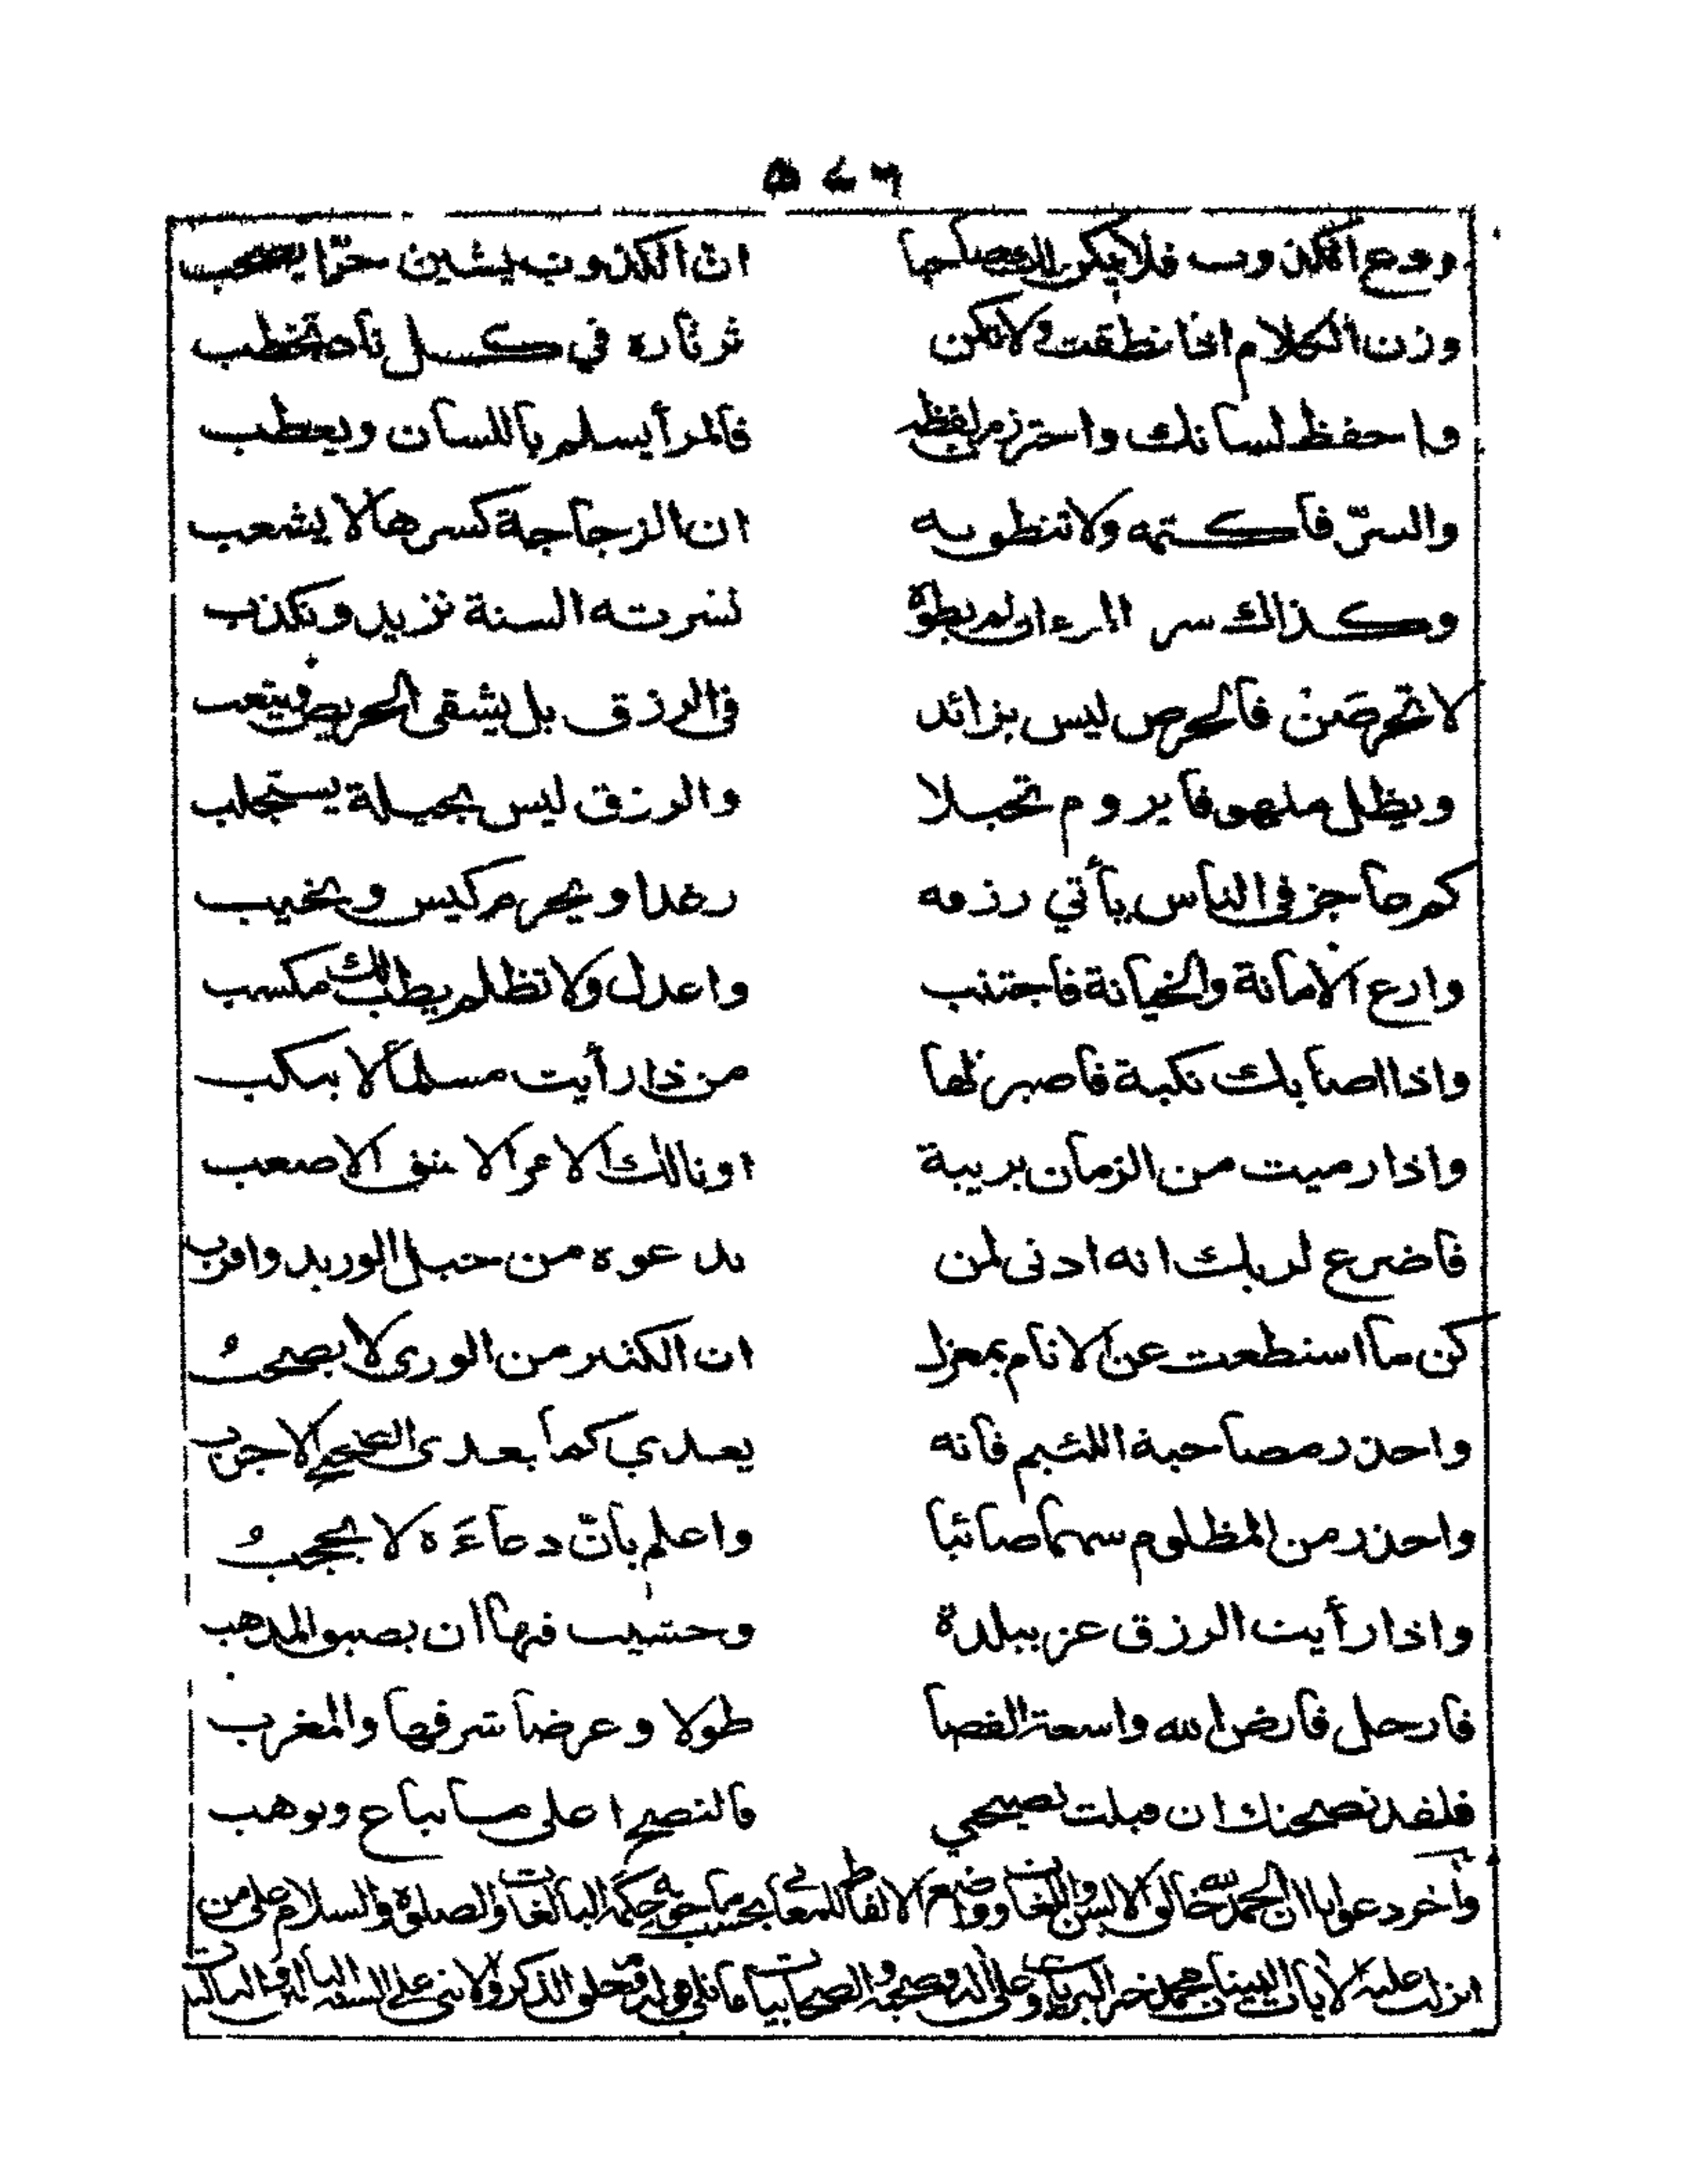 ٥٤٦
ودع الكذوب فلا يكن لك صاحبا ان الكذوب يشين حرّا يصحب
وزن الكلام اذا نطقت ولا تكن ثرثاره في كل ناد تخطب
واحفظ لسانك واحترز من لفظه فالمرأ يسلم باللسان ويعطب
والسرّ فاكتمه ولا تنطو به ان الزجاجة كسرها لا يشعب
وكذاك سر المرء ان لم يطوه نشرته السنة تزيد وتكذب
لا تحرصَنْ فالحرص ليس بزائد فى الرزق بل يشقى الحريص ويتعب
ويظل ملهوفا يروم تحيلا والرزق ليس بحيلة يستجلب
كم عاجز فى الناس يأتي رزقه رغدا ويحرم كيس ويخيب
وارع الامانة والخيانة فاجتنب واعدل ولا تظلم يطب لك مكسب
واذا اصابك نكبة فاصبر لها من ذا رأيت مسلما لا ينكب
واذا رميت من الزمان بريبة او نالك الامر الاشق الاصعب
فاضرع لربك انه ادنى لمن يدعوه من حبل الوريد واقرب
كن ما استطعت عن الانام بمعزل ان الكثير من الورى لا يصحبُ
واحذر مصاحبة اللئيم فانه يعدي كما يعدى الصحيح الاجرب
واحذر من المظلوم سهما صائبا واعلم بانّ دعاءَه لا يحجبُ
واذا رأيت الرزق عز ببلدة وخشيت فيها ان يضيق المذهب
فارحل فارض الله واسعة الفضا طولا وعرضا شرقها والمغرب
فلقد نصحتك ان قبلت نصيحتي فالنصح اعلى ما يباع ويوهب
وآخر دعوانا ان الحمد لله خالق الالسن واللغات وواضع الالفاظ للمعاني بحسب ما حكمه البالغات والصلوة والسلام على من
انزلت عليه الآيات البينات محمد خير البريات وعلى اله وصحبه